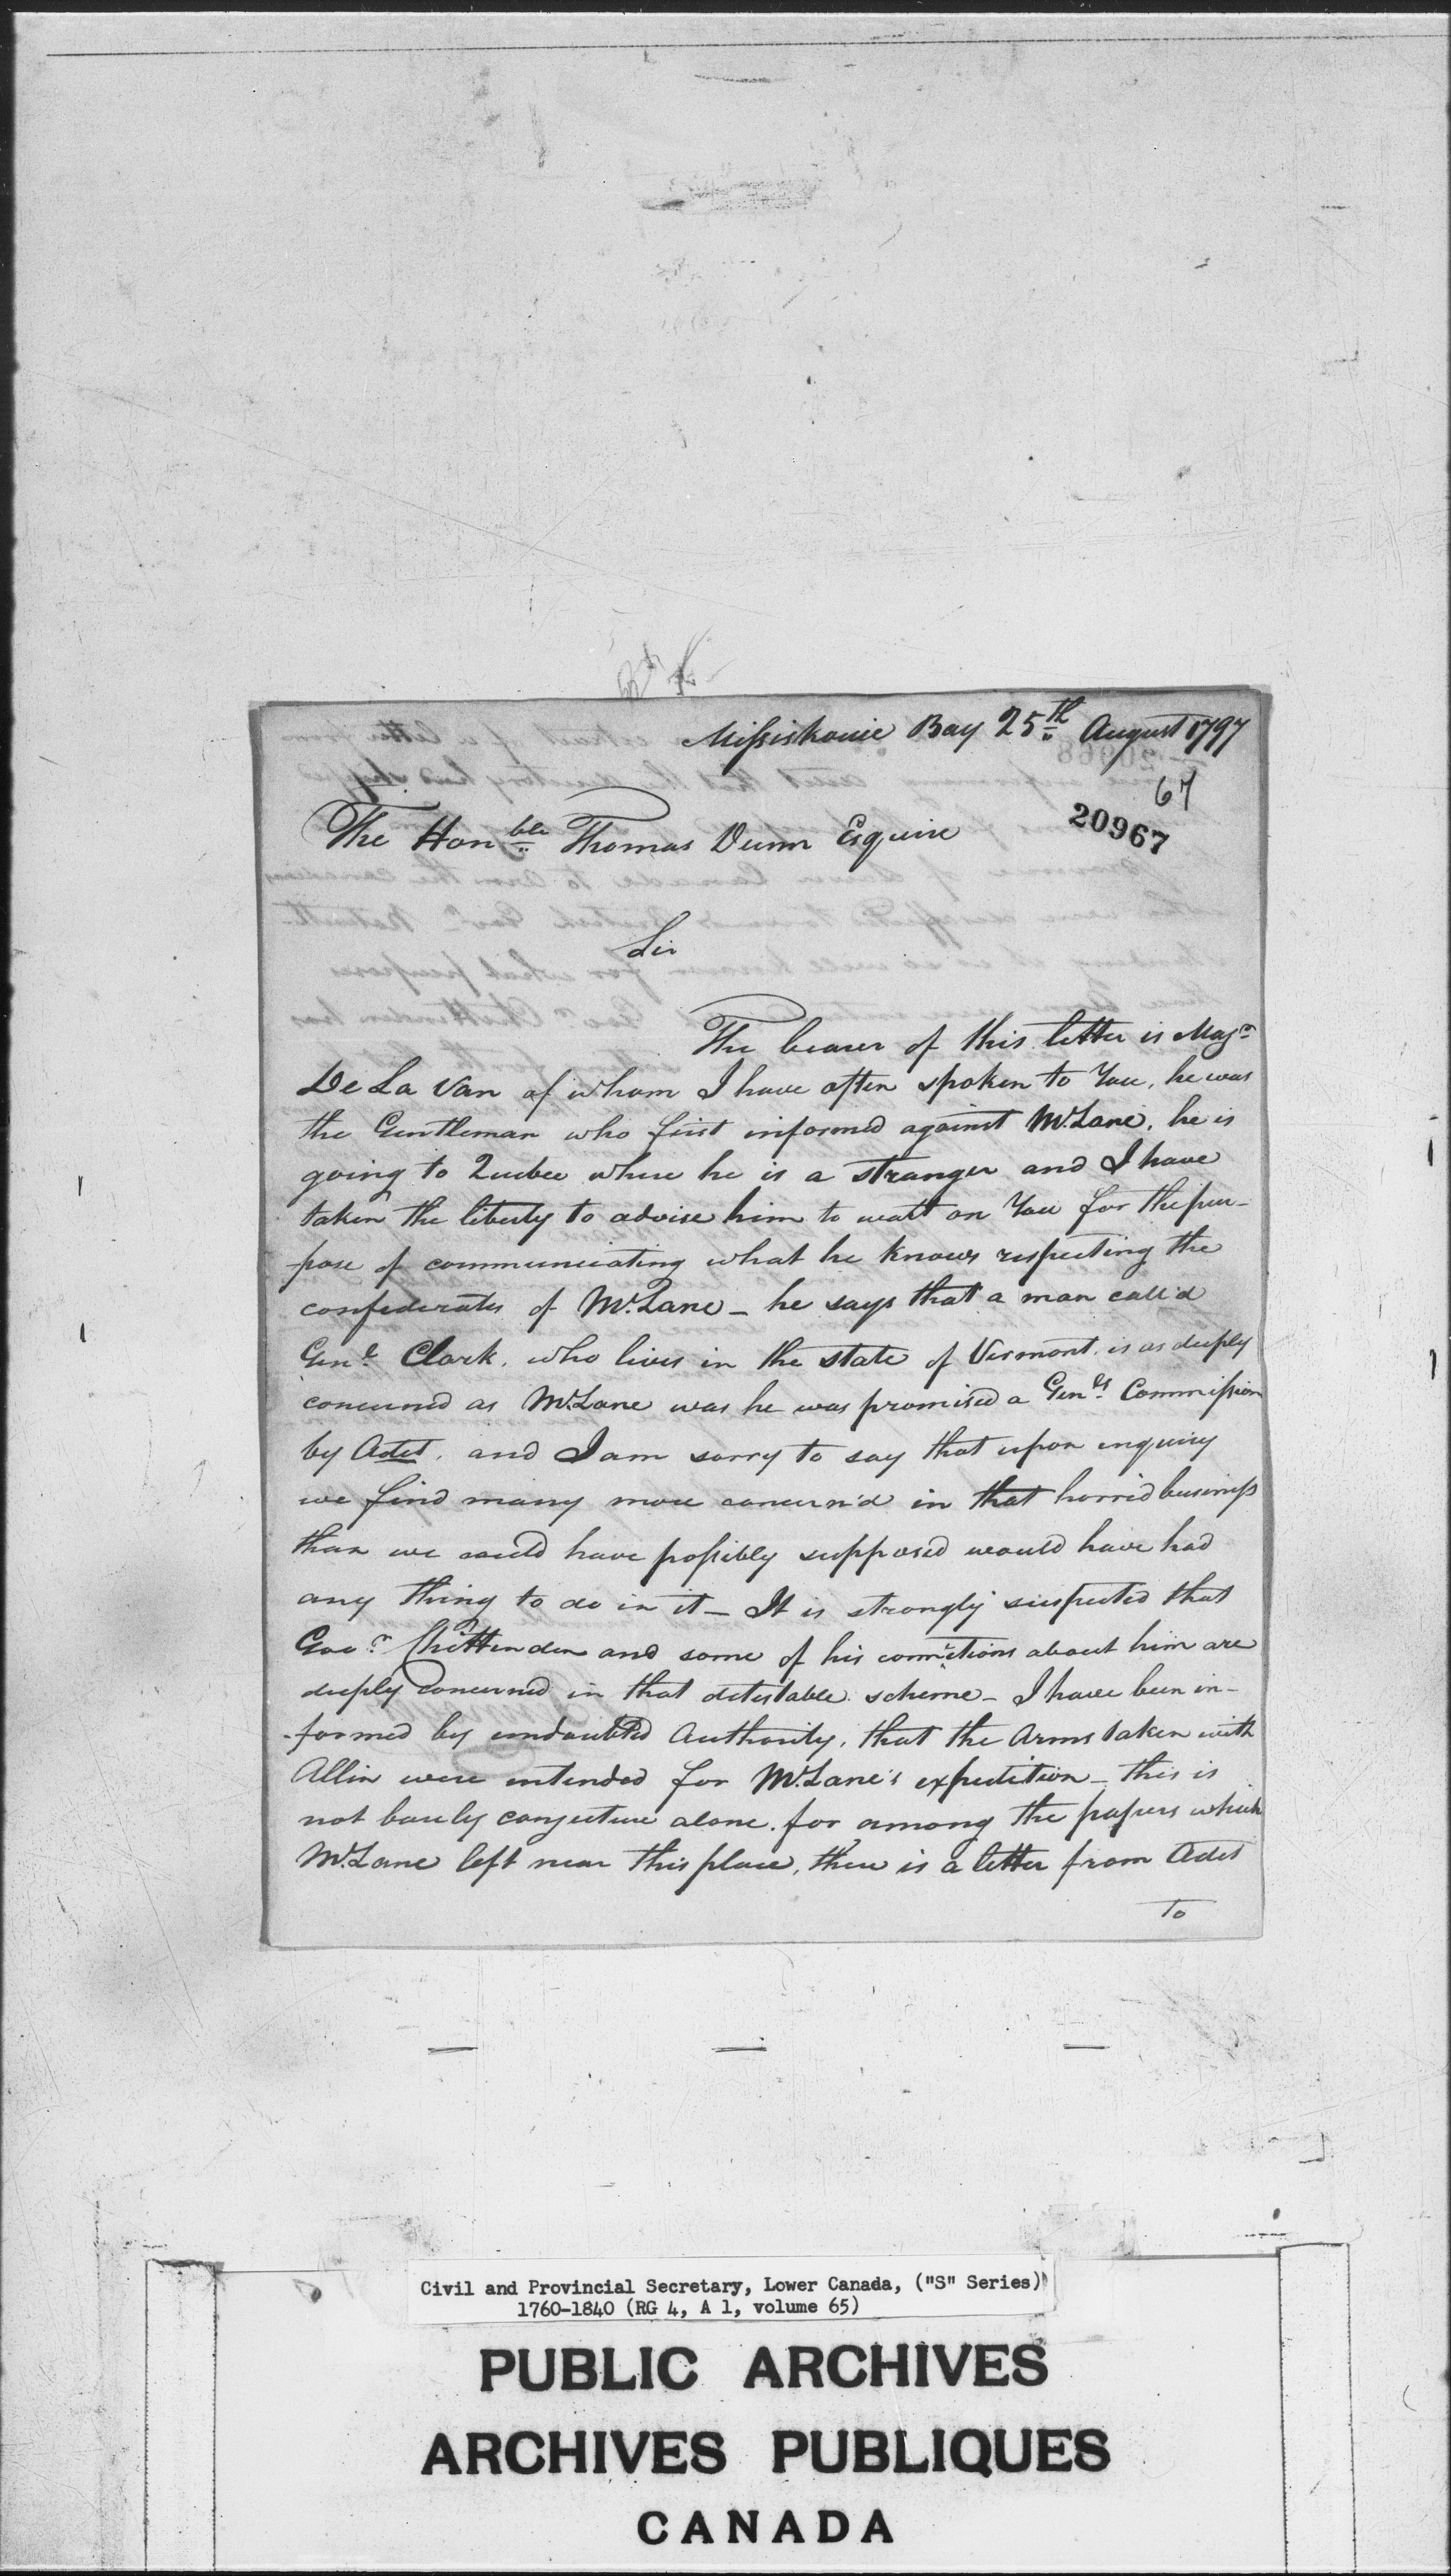 Missiskouie Bay 25th August 1797
67
20967
The Honble Thomas Dunn Esquire
Sir
The bearer of this letter is Majr
De La Van of whom I have often spoken to You, he was
the Gentleman who first informed against McLane, he is
going to Quebec where he is a stranger and I have
taken the liberty to advise him to wait on You for the pur-
pose of communicating what he knows respecting the
confederates of McLane - he says that a man call'd
Genl Clark, who lives in the state of Vermont, is as deeply
concerned as McLane was he was promised a Genls Commission
by Adet, and I am sorry to say that upon enquiry
we find many more concern'd in that horrid business
than we could have possibly supposed would have had
any thing to do in it - It is strongly suspected that
Govr Chittenden and some of his connections about him are
deeply concerned in that detestable scheme - I have been in-
formed by undoubted Authority, that the Arms taken with
Allin were intended for McLane's expedition - this is
not barely conjecture alone. for among the papers which
McLane left near this place, there is a letter from Adet
To
Civil and Provincial Secretary, Lower Canada, ("S" Series)
1760-1840 (RG 4, A 1, volume 65)
PUBLIC ARCHIVES
ARCHIVES PUBLIQUES
CANADA